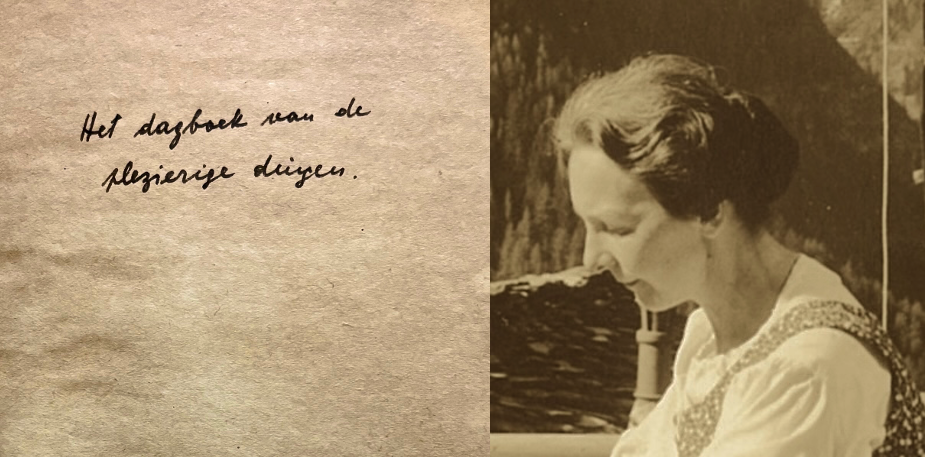 Het dagboek van de
plezierige dingen.